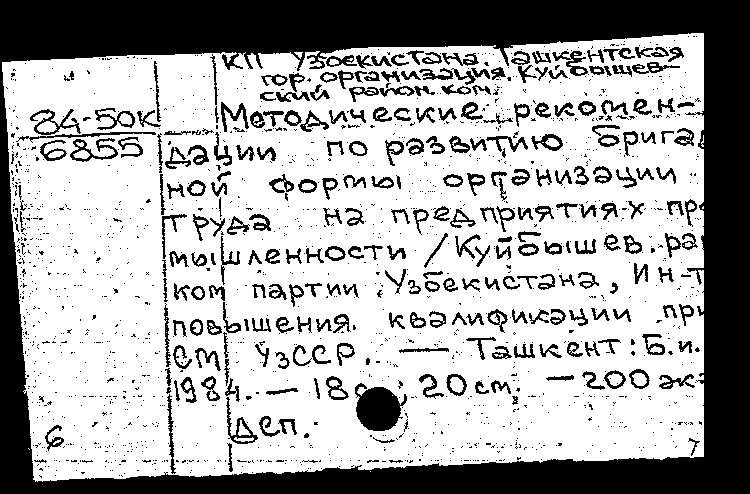 КП Узбекистана. Ташкентская
гор. организация. Куйбышев-
ский район. ком.
84-50К Методические рекомен-
6855 дации по развитию бригад
ной формы организации
труда на предприятиях пр
мышленности / Куйбышев. ра
ком партии Узбекистана, Ин-т
повышения квалификации пр
СМ УзССР. — Ташкент: Б.и.
1984. — 18 20 см. — 200 экз
Деп.
6 7